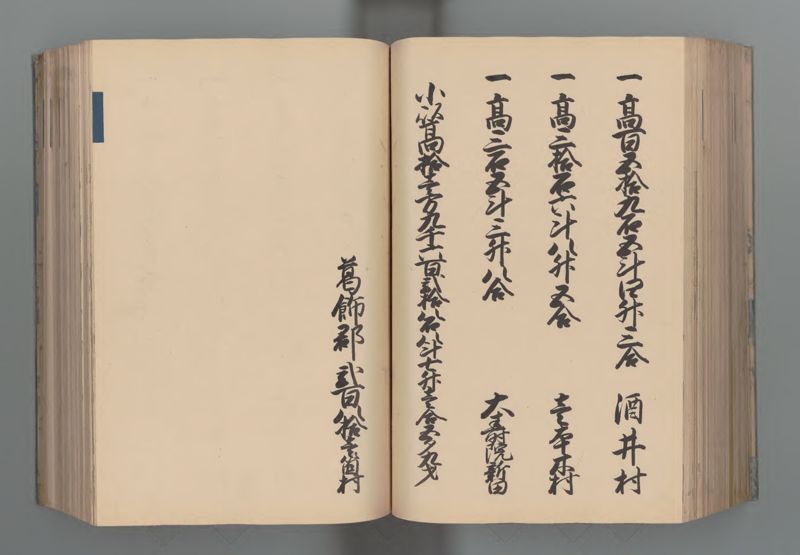 一高百五拾九石五斗四升三合 酒井村
一高三拾石六斗八升五合 壱本木村
一高三石五斗三升八合 大生院新田
小以高拾壱万九千六百弐拾八石八斗七升壱合五夕九才
葛飾郡 弐百八拾壱箇村